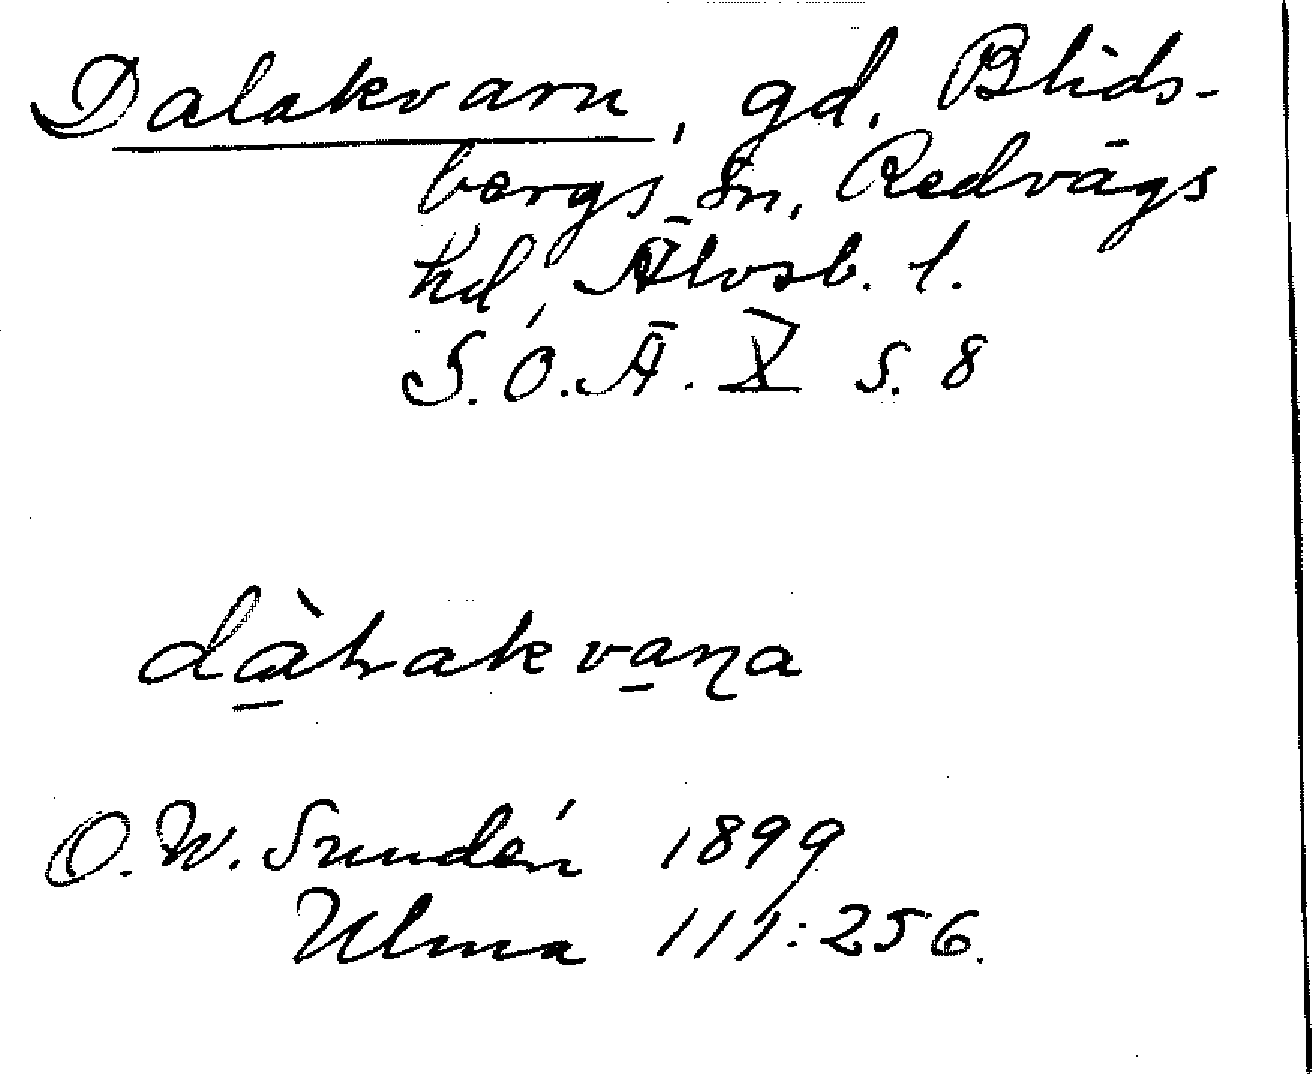 Dalakvarn, gd. Blids-
bergs sn, Redvägs
hd, Älvsb. l.
S.O.Ä. X s. 8
dàlakvaɳa
O.W. Sundén 1899
Ulma 111:256.